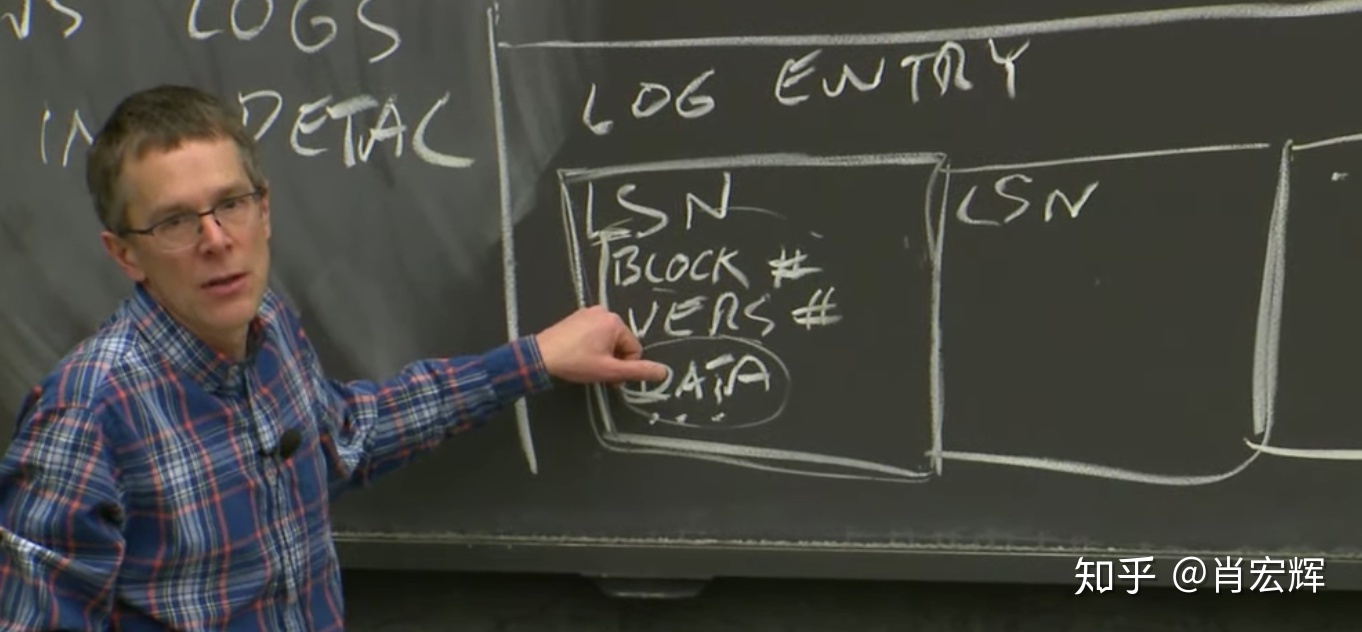 LOGS
IN DETAL
LOG ENTRY
LSN
BLOCK #
VERS #
DATA
...
LSN
知乎 @肖宏辉